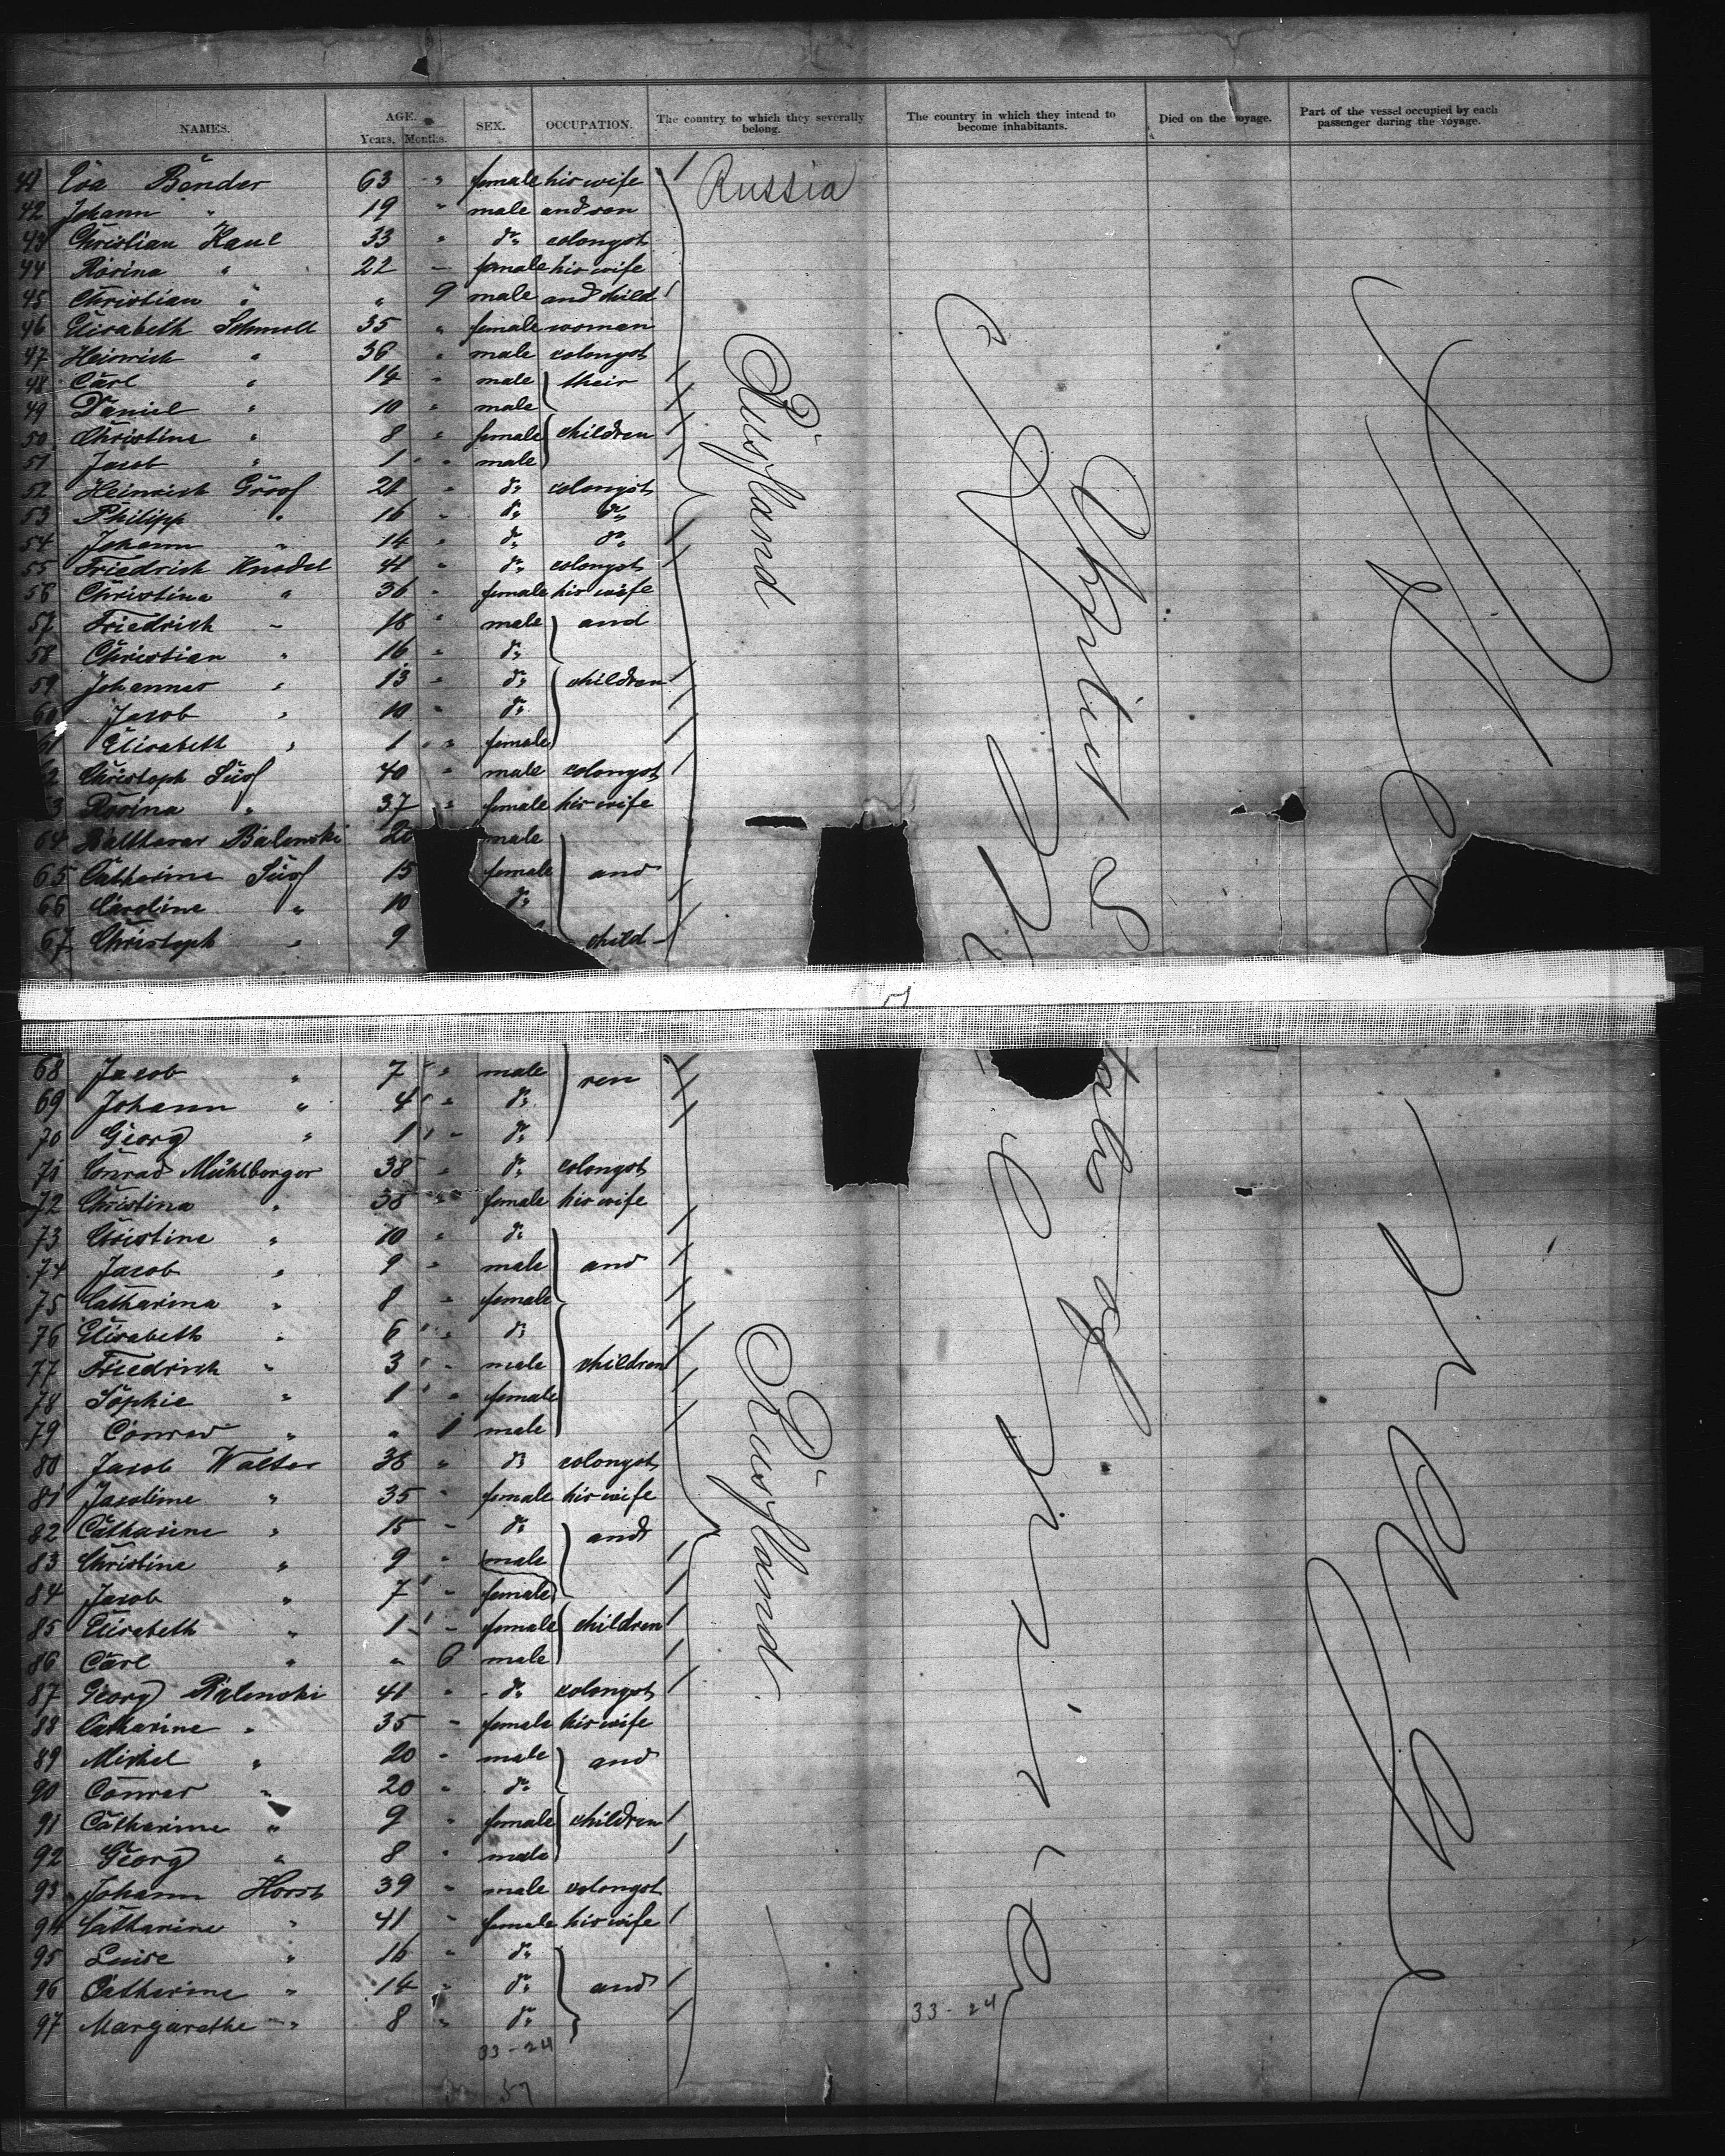 NAMES. AGE. Years. Months. SEX. OCCUPATION. The country to which they severally belong. The country in which they intend to become inhabitants. Died on the voyage. Part of the vessel occupied by each passenger during the voyage.
41 Eva Bender 63 " female his wife Russia
42 Johann " 19 " male and son
43 Christian Kaul 33 " do colongst
44 Rosina " 22 - female his wife
45 Christian " " 9 male and child
46 Elisabeth Schmoll 35 " female woman
47 Heinrich " 36 " male colongst
48 Carl " 14 " male their
49 Daniel " 10 " male
50 Christine " 8 " female children
51 Jacob " 1 " male
52 Heinrich 21 " do colongst
53 Philipp " 16 " do do
54 Johann " 14 " do do
55 Friedrich Knodel 41 " do colongst
56 Christina " 36 " female his wife
57 Friedrich " 18 " male and
58 Christian " 16 " do
59 Johannes " 13 " do children
60 Jacob " 10 " do
61 Elisabeth " 1 " female
2 Christoph Süß 40 " male colongst
3 Rosina " 37 " female his wife
64 Balthasar Balenski male
65 Catharine Süß 15 female and
66 Caroline " 10 do
67 Christoph " 9 child-
Rußland
68 Jacob " 7 " male ren
69 Johann " 4 " do
70 Georg " 1 " do
71 Conrad Mühlberger 38 " do colongst
72 Christina " 38 " female his wife
73 Christine " 10 " do
74 Jacob " 9 " male and
75 Catharina " 8 " female
76 Elisabeth " 6 " do
77 Friedrich " 3 " male children
78 Sophie " 1 " female
79 Conrad " " 1 male
80 Jacob Walter 38 " do colongst
81 " 35 " female his wife
82 Catharine " 15 " do and
83 Christine " 9 " male
84 Jacob " 7 " female
85 Elisabeth " 1 " female children
86 Carl " " 6 male
87 Georg Balenski 41 " do colongst
88 Catharine " 35 " female his wife
89 Michel " 20 " male and
90 Conrad " 20 " do
91 Catharine " 9 " female children
92 Georg " 8 " male
93 Johann Horst 39 " male colongst
94 Catharine " 41 " female his wife
95 Luise " 16 " do
96 Catharine " 14 " do and
97 Margarethe " 8 " do
Rußland
33-24
33-24
57
United States of
America